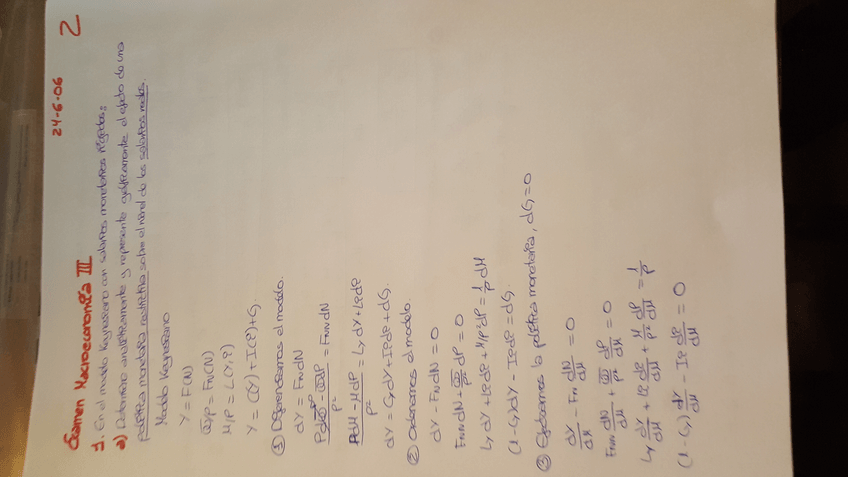 24-6-06
2
Examen Macroeconomía III
1. En el modelo Keynesiano con salarios monetarios rígidos:
a) Determine analíticamente y represente gráficamente el efecto de una
política monetaria restrictiva sobre el nivel de los salarios reales.
Modelo Keynesiano
Y = F(N)
W̄/P = F_N(N)
M/P = L(Y,r)
Y = C(Y) + I(r) + G.
① Diferenciamos el modelo.
dY = F_N dN
(PdW̄ - W̄dP)/P² = F_NN dN
(PdM - MdP)/P² = L_Y dY + L_r dr
dY = C_Y dY + I_r dr + dG.
② Ordenamos el modelo.
dY - F_N dN = 0
F_NN dN + W̄/P² dP = 0
L_Y dY + L_r dr + M/P² dP = 1/P dM
(1 - C_Y) dY - I_r dr = dG.
③ Ejecutamos la política monetaria, dG = 0
dY/dM - F_N dN/dM = 0
F_NN dN/dM + W̄/P² dP/dM = 0
L_Y dY/dM + L_r dr/dM + M/P² dP/dM = 1/P
(1 - C_Y) dY/dM - I_r dr/dM = 0